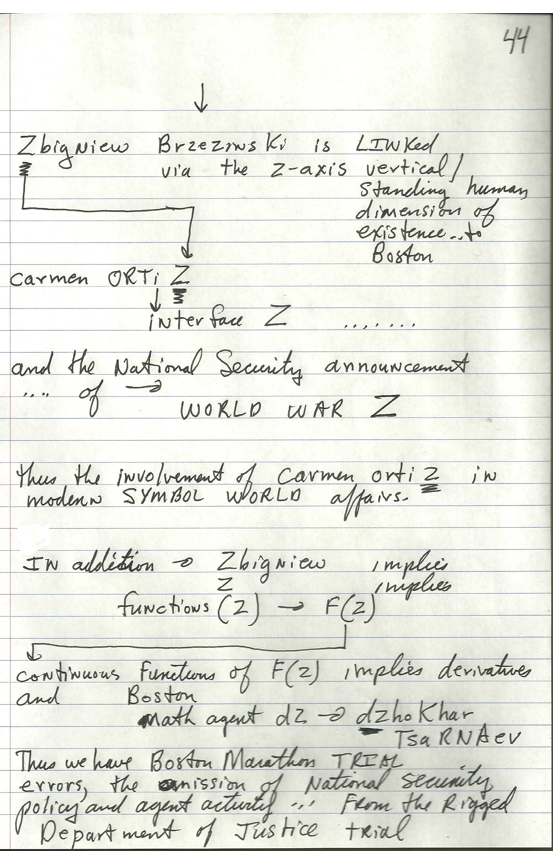 44
Zbigniew Brzezinski is LINKed
via the z-axis vertical/
Standing human
dimension of
existence...to
Boston
Carmen ORTi Z
interface Z ........
and the National Security announcement
.... of →
WORLD WAR Z
Thus the involvement of Carmen Orti Z in
modern SYMBOL WORLD affairs.
IN addition → Zbigniew implies
Z implies
functions (Z) → F(Z)
continuous functions of F(z) implies derivatives
and Boston
math agent dz → dzhoKhar
TsaRNAev
Thus we have Boston Marathon TRIAL
errors, the omission of National security
policy and agent activity ... From the Rigged
Department of Justice trial